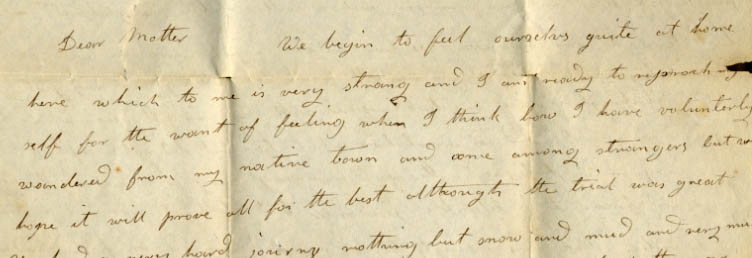 Dear Mother We begin to feel ourselvs quite at home
here which to me is very strang and I am ready to reproach my
self for the want of feeling when I think how I have volunterly
wandered from my native town and come among strangers but we
hope it will prove all for the best although the trial was great
had a very hard journy nothing but snow and mud and very mu